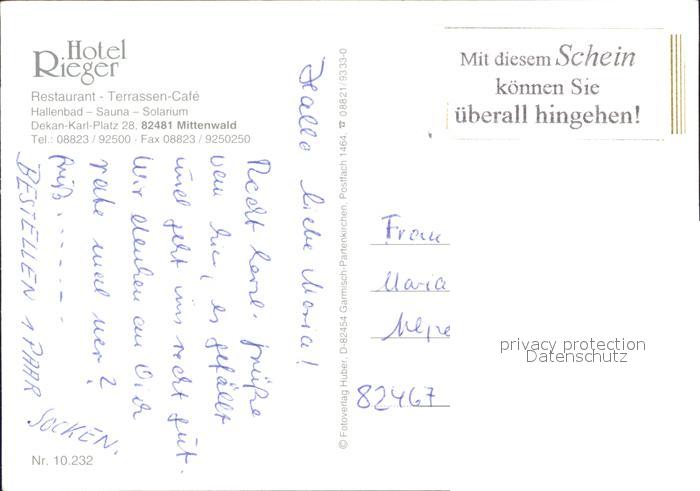 Hotel
Rieger
Restaurant - Terrassen-Café
Hallenbad – Sauna – Solarium
Dekan-Karl-Platz 28, 82481 Mittenwald
Tel.: 08823 / 92500 · Fax 08823 / 9250250
Hallo liebe Maria!
Recht herzl. Grüße
von hier, es gefällt
und geht uns recht gut.
Wir denken an Dich
rate mal wer?
Grüß......
BESTELLEN 1 PAAR
SOCKEN.
Nr. 10.232
© Fotoverlag Huber, D-82454 Garmisch-Partenkirchen, Postfach 1464, ☎ 08821/9333-0
Mit diesem Schein
können Sie
überall hingehen!
Frau
Maria
82467
privacy protection
Datenschutz